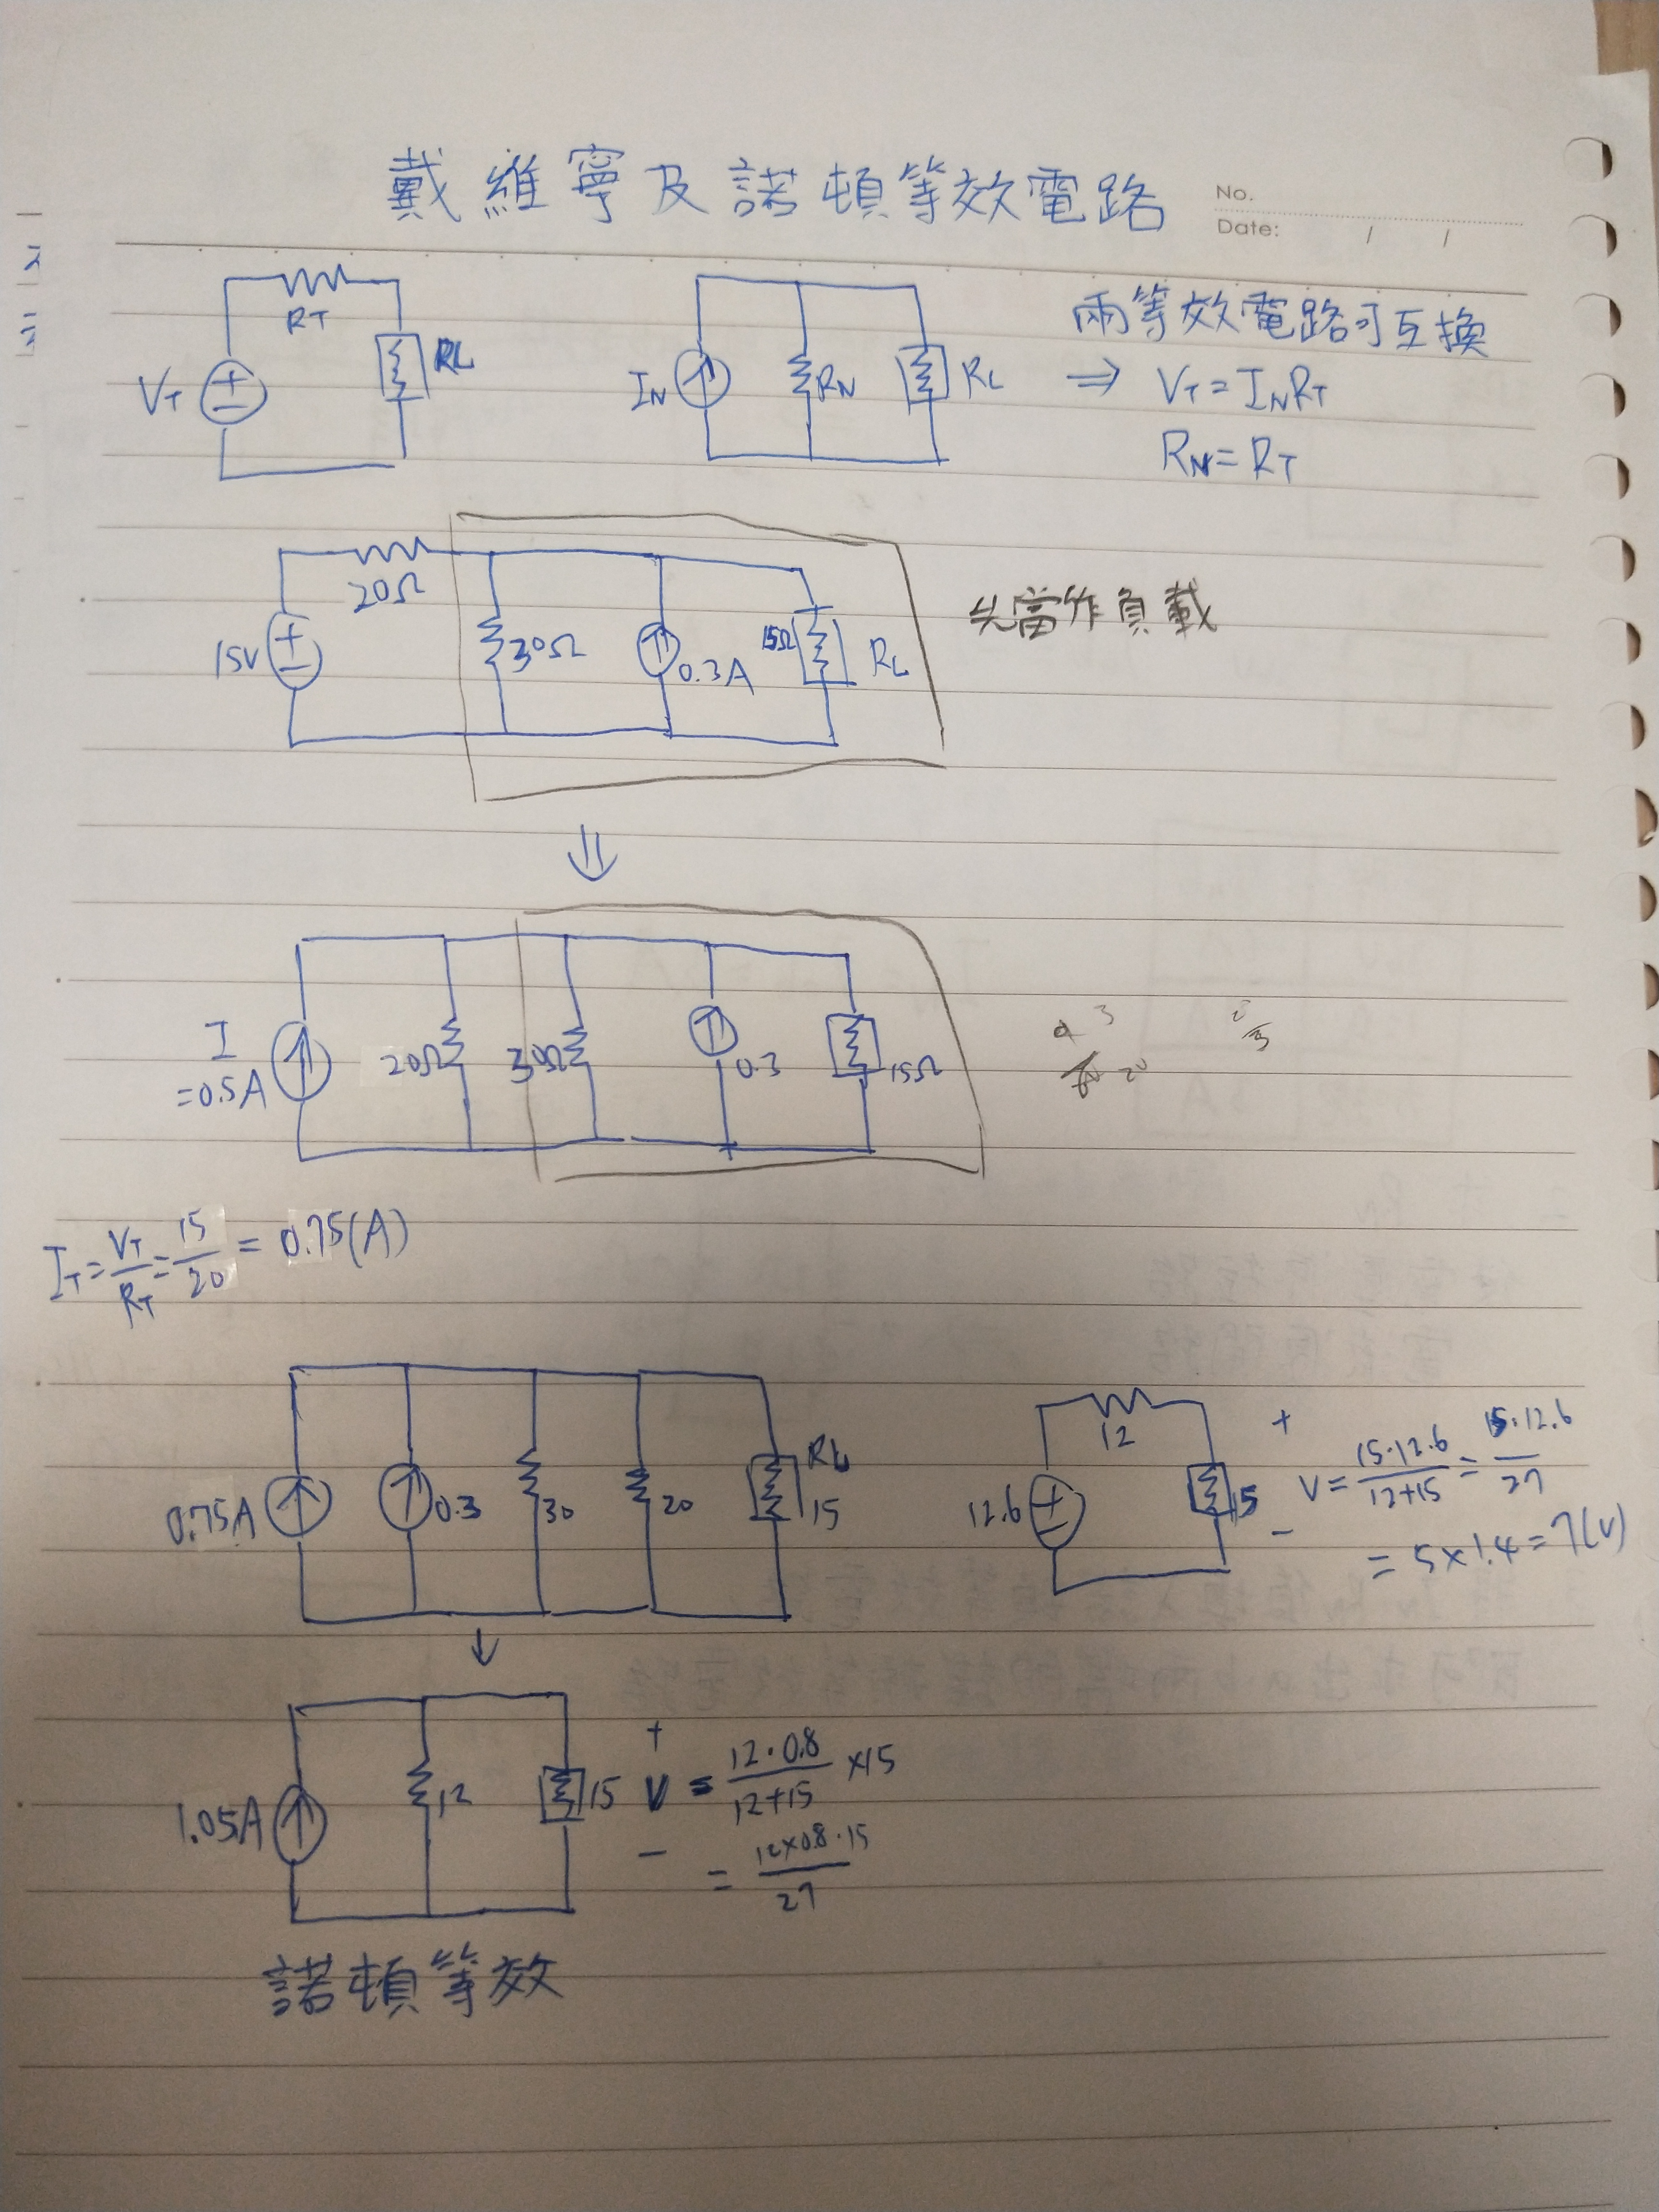 戴維寧及諾頓等效電路
No.
Date: / /
RT
RL
VT
IN
RN
RL
兩等效電路可互換
⇒ VT = INRT
RN = RT
20Ω
15V
30Ω
0.3A
15Ω
RL
先當作負載
⇓
I
=0.5A
20Ω
30Ω
0.3
15Ω
IT = VT/RT = 15/20 = 0.75(A)
0.75A
0.3
30
20
RL
15
12
12.6
15
+
V = 15·12.6/12+15 = 15·12.6/27
−
= 5×1.4 = 7(V)
↓
1.05A
12
15
+
V = 12·0.8/12+15 ×15
−
= 12×0.8·15/27
諾頓等效